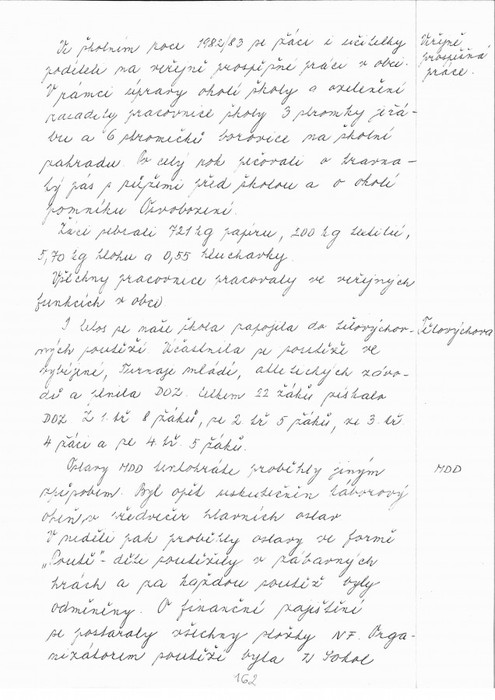 Ve školním roce 1982/83 se žáci i učitelky
podíleli na veřejně prospěšné práci v obci.
V rámci úpravy okolí školy a ozelenění
zasadily pracovnice školy 3 stromky jeřá-
bu a 6 stromečků borovice na školní
zahradu. Po celý rok pečovali o travna-
tý pás s růžemi před školou a o okolí
pomníku Osvobození.
Žáci sebrali 721 kg papíru, 200 kg textilu,
5,70 kg hlohu a 0,55 hluchavky.
Všechny pracovnice pracovaly ve veřejných
funkcích v obci
I letos se naše škola zapojila do tělovýchov-
ných soutěží. Účastnila se soutěže ve
vybíjené, Turnaje mládí, atletických závo-
dů a plnila DOZ. Celkem 22 žáků získalo
DOZ Z 1. tř 8 žáků, ze 2 tř 5 žáků, ze 3. tř
4 žáci a ze 4. tř. 5 žáků.
Oslavy MDD tentokráte proběhly jiným
způsobem. Byl opět uskutečněn táborový
oheň v předvečer hlavních oslav
V neděli pak proběhly oslavy ve formě
„Poutě" - děti soutěžily v zábavných
hrách a za každou soutěž byly
odměněny. O finanční zajištění
se postaraly všechny složky NF. Orga-
nizátorem soutěží byla ZO Sokol
162
Veřejně
prospěšná
práce.
Tělovýchova
MDD